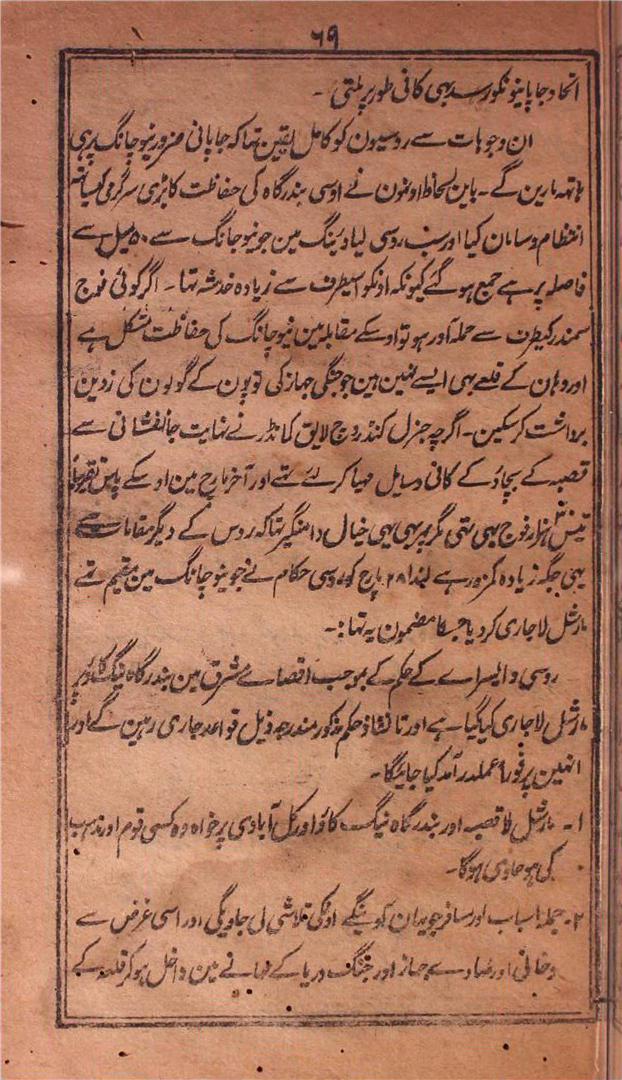 ۶۹
اتحاد جاپانیونکو رسد بہی کافی طور پر ملتی -
ان وجوہات سے روسیون کو کامل یقین تہا کہ جاپانی ضرور نیوچانگ پر ہی
ہاتہہ مارین گے - باین لحاظ اونہون نے اوسی بندرگاہ کی حفاظت کا بڑی سرگرمی کیساتہہ
انتظام و سامان کیا اور سب روسی لیاؤینگ مین جو نیوچانگ سے ۵۰ میل سے
فاصلہ پر ہے جمع ہو گئے کیونکہ اونکو اسیطرف سے زیادہ خدشہ تہا - اگر کوئی فوج
سمندر کیطرف سے حملہ آور ہو تو اوسکے مقابلہ مین نیوچانگ کی حفاظت مشکل ہے
اور وہان کے قلعے بہی ایسے نہین ہین جو جنگی جہاز کی توپون کے گولون کی زدین
برداشت کر سکین - اگرچہ جنرل کنڈروچ لایق کمانڈر نے نہایت جانفشانی سے
قصبہ کے بچاؤ کے کافی وسایل مہیا کر لئے تہے اور آخر مارچ مین اوسکے پاس تقریباً
تیس ہزار فوج بہی تہی مگر پہر بہی یہی خیال دامنگیر تہا کہ روس کے دیگر مقامات سے
یہی جگہ زیادہ کمزور ہے لہذا ۲۸ مارچ کو روسی حکام نے جو نیوچانگ مین مقیم تہے
مارشل لا جاری کر دیا جسکا مضمون یہ تہا :-
روسی وایسراے کے حکم کے بموجب اقصاے مشرق مین بندرگاہ نینگ کاؤ پر
مارشل لا جاری کیا گیا ہے اور تا نفاذ حکم مذکور مندرجہ ذیل قواعد جاری رہین گے اور
انہین پر فوراً عملدرآمد کیا جائیگا -
۱- مارشل لا قصبہ اور بندرگاہ نینگ کاؤ اور کل آبادی پر خواہ وہ کسی قوم اور مذہب
کی ہو حاوی ہوگا -
۲- جملہ اسباب اور مسافر جو یہان آوینگے اونکی تلاشی لی جاویگی اور اسی غرض سے
دخانی اور جہاز اور جنگ دریا کے دہانے مین داخل ہو کر قلعہ کے